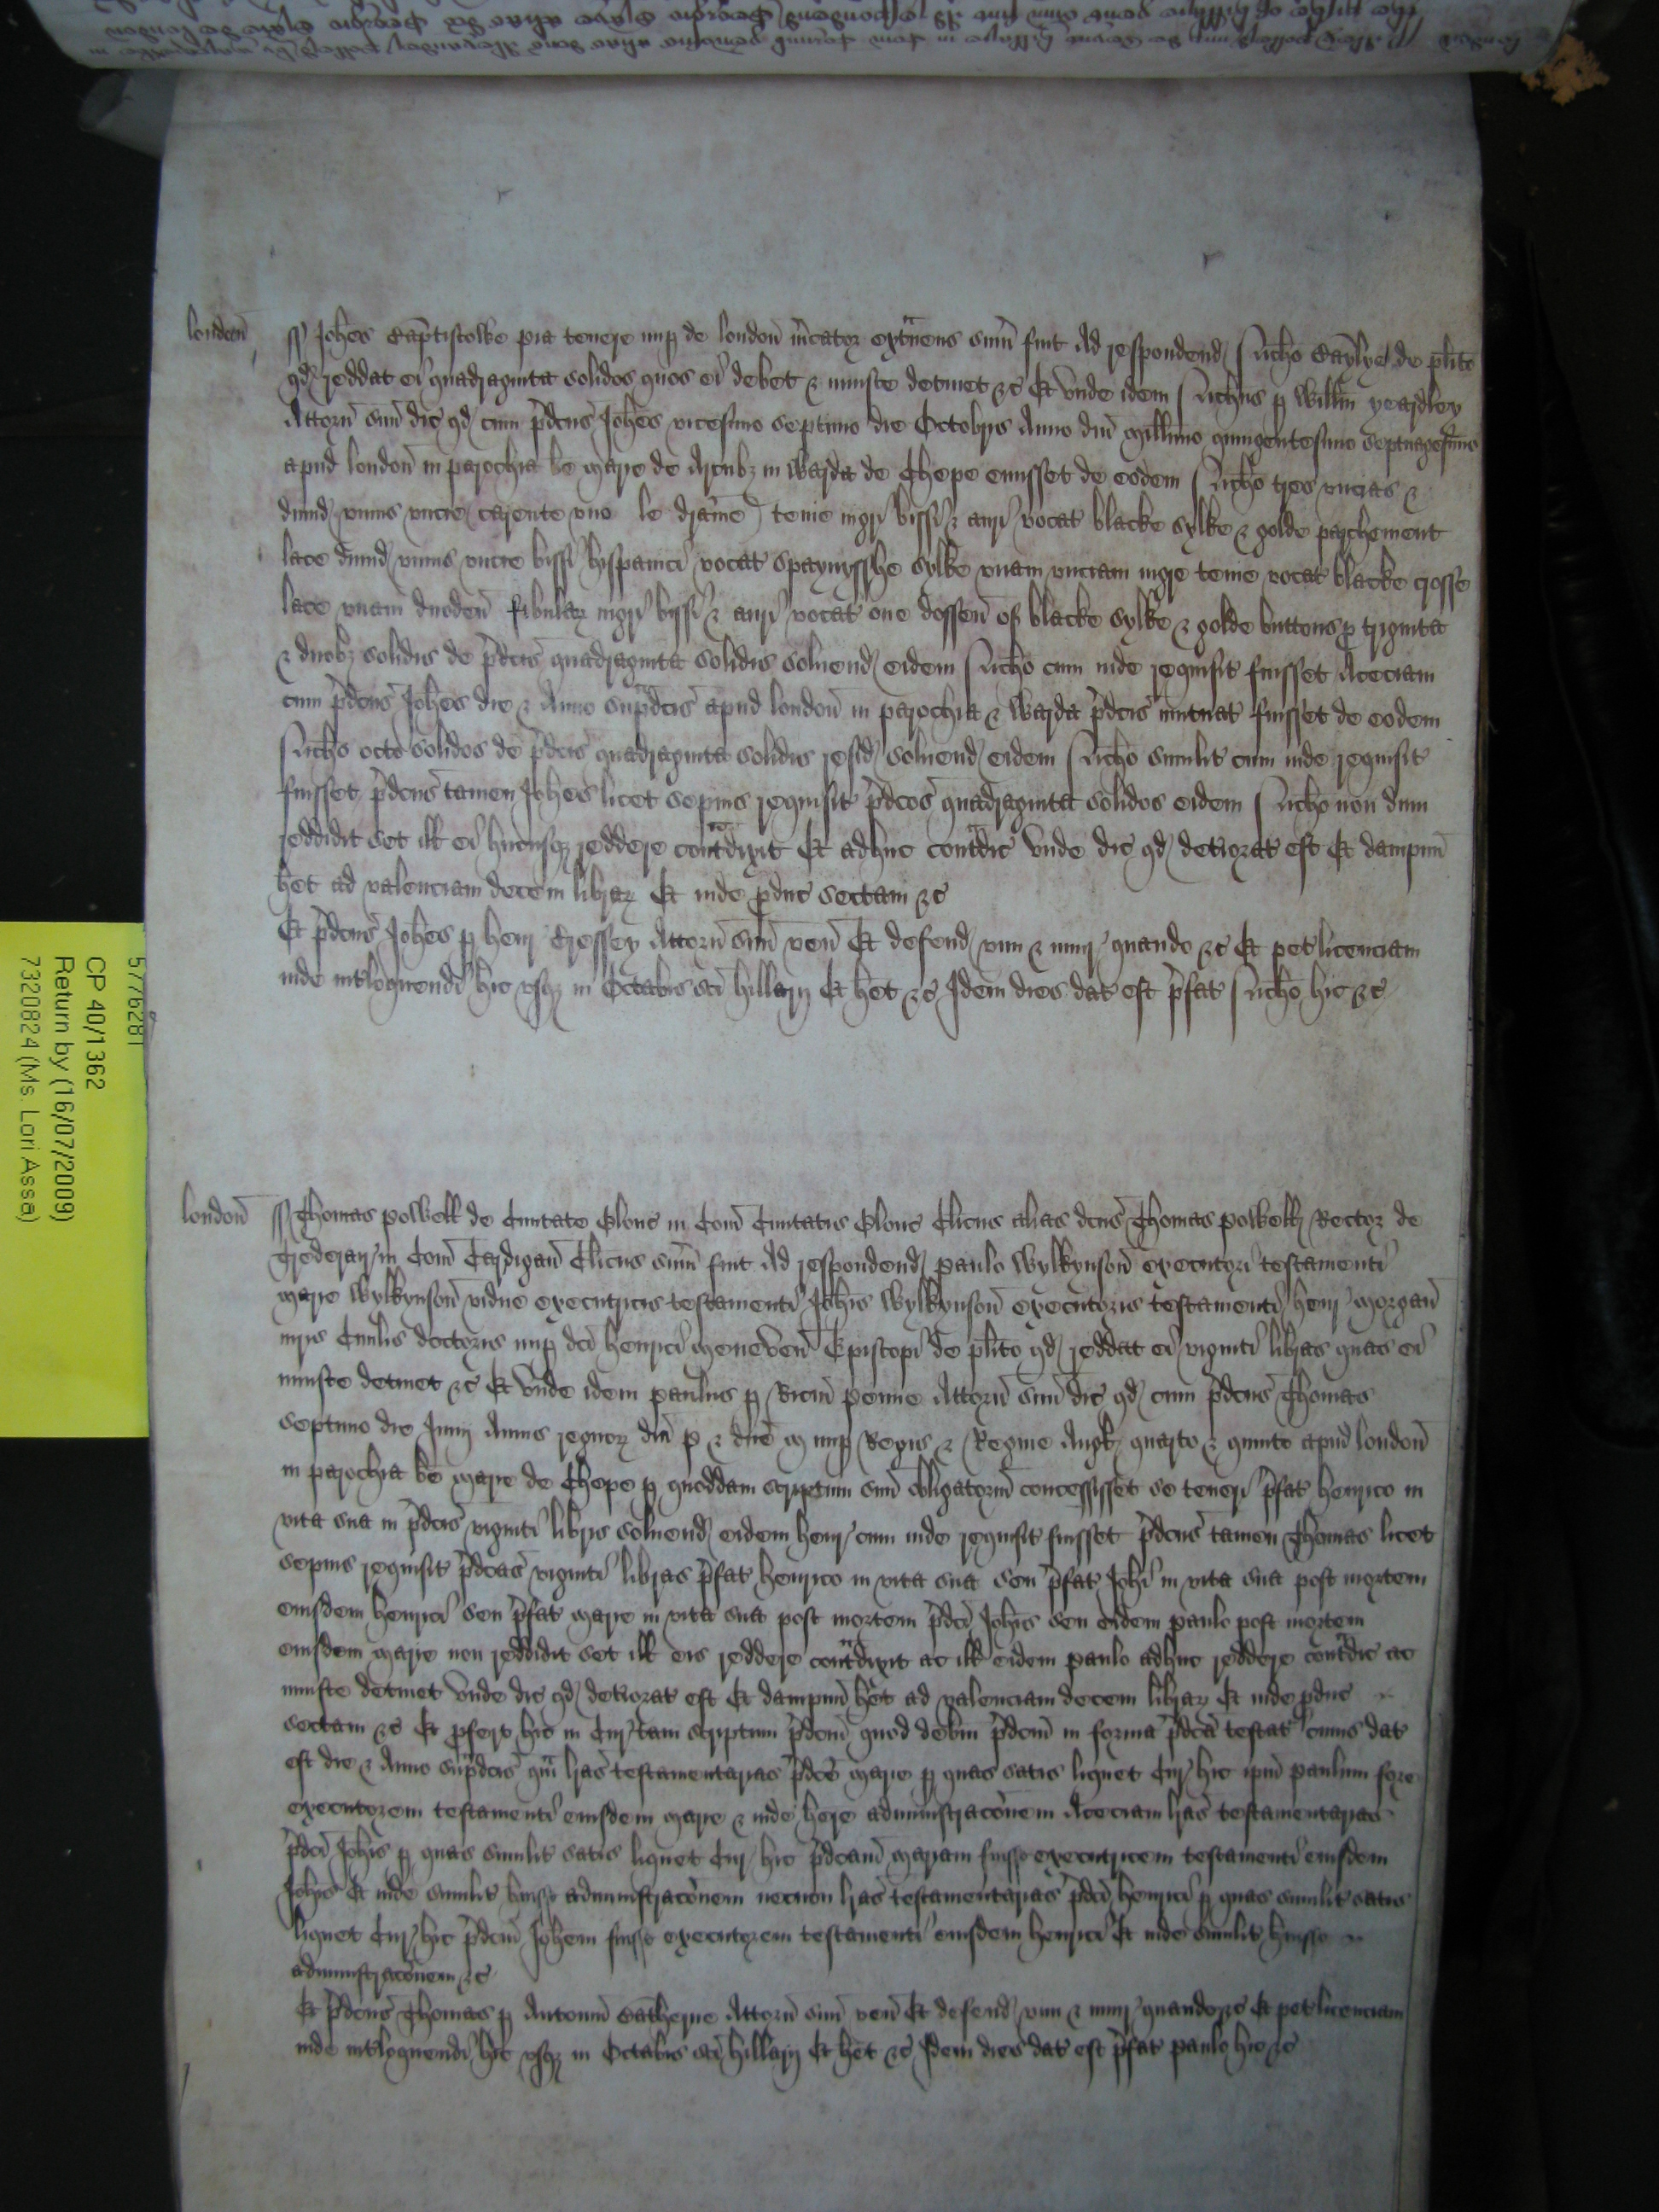 london̄ ss Joh̄es Baptist pia tenere nup de london̄ m̄cator extraneus sum̄ fuit Ad respondend Nicho Baylye de pl̄ito
qd reddat ei quadraginta solidos quos ei debet & iniuste detinet &c Et vnde idem Nich̄us p Will̄m yeardley
Attorn̄ suū dic qd cum p̄dcus Joh̄es vicesimo septimo die Octobris Anno dn̄i millimo quingentesimo septuagesimo
apud london̄ in parochia be Marie de Arcub3 in Warda de Chepe emisset de eodem Nicho tres vncias &
dimid vnius vncie carente vno le drame tenie nigri bissi & auri vocat blacke sylke & golde parchement
lace dimid vnius vncie bissi hispanici vocat spaynysshe sylke vnam vnciam nigre tenie vocat blacke crosse
lace vnam duoden̄ fibular nigri bissi & auri vocat one dossen of blacke sylke & golde buttons p triginta
& duob3 solidis de p̄dcis quadraginta solidis soluend eidem Nicho cum inde requisit fuisset Aceciam
cum p̄dcus Joh̄es die & Anno sup̄dcis apud london̄ in parochia & Warda p̄dcis mutuat fuisset de eodem
Nicho octo solidos de p̄dcis quadraginta solidis resid soluend eidem Nicho similit cum inde requisit
fuisset p̄dcus tamen Joh̄es licet sepius requisit p̄dcos quadraginta solidos eidem Nicho non dum
reddidit set ill ei hucusq3 reddere contradixit Et adhuc contradic vnde dic qd deteriorat est Et dampnū
h̄et ad valenciam decem librar Et inde producit sectam &c
Et p̄dcus Joh̄es p Henr Cressey Attorn̄ suū ven̄ Et defend vim & iniur quando &c Et pet licenciam
inde int̄loquendi hic vsq3 in Octabis sci hillarij Et h̄et &c Idem dies dat est p̄fat Nicho hic &c
london̄ ss Thomas Powell de Ciuitate Glouc in Com̄ Ciuitatis Glouc Clicus alias dcus Thomas Powell Rector de
in Com̄ Cardigan̄ Clicus sum̄ fuit Ad respondend Paulo Wylkynson̄ executori testamenti
Marie Wylkynson̄ vidue executricis testamenti Joh̄is Wylkynson̄ executoris testamenti henr Morgan̄
iuris Ciuilis doctoris nup dci henrici Meneven̄ Episcopi de pl̄ito qd reddat ei viginti libras quas ei
iniuste detinet &c Et vnde idem Paulus p Ricū Penne Attorn̄ suū dic qd cum p̄dcus Thomas
septimo die Junij Annis regnor dn̄i P & dn̄e M nup Regis & Regine Angl quarto & quinto apud london̄
in parochia be Marie de Chepe p quoddam scriptum suū obligatoriū concessisset se teneri p̄fat henrico in
vita sua in p̄dcis viginti libris soluend eidem henr cum inde requisit fuisset p̄dcus tamen Thomas licet
sepius requisit p̄dcas viginti libras p̄fat henrico in vita sua seu p̄fat Joh̄i in vita sua post mortem
eiusdem henrici seu p̄fat Marie in vita sua post mortem p̄dci Joh̄is seu eidem Paulo post mortem
eiusdem Marie non reddidit set ill eis reddere contradixit ac ill eidem Paulo adhuc reddere contradic ac
iniuste detinet vnde dic qd deteriorat est Et dampnū h̄et ad valenciam decem librar Et inde producit
sectam &c Et profert hic in Cur tam scriptum p̄dcm̄ quod debitū p̄dcm̄ in forma p̄dca testat cuius dat
est die & Anno sup̄dcis qm̄ l̄ras testamentarias p̄dce Marie p quas satis liquet Cur hic ip̄m Paulum fore
executorem testamenti eiusdem Marie & inde h̄ere administrac̄onem Aceciam l̄ras testamentarias
p̄dci Joh̄is p quas similit satis liquet Cur hic p̄dcam̄ Mariam fuisse executricem testamenti eiusdem
Joh̄is Et inde similit h̄uisse administrac̄onem necnon l̄ras testamentarias p̄dci henrici p quas similit satis
liquet Cur hic p̄dcm̄ Joh̄em fuisse executorem testamenti eiusdem henrici Et inde similit h̄uisse
administrac̄onem &c
Et p̄dcus Thomas p Antoniū Attorn̄ suū ven̄ Et defend vim & iniur quando &c Et pet licenciam
inde int̄loquendi hic vsq3 in Octabis sci hillarij Et h̄et &c Idem dies dat est p̄fat Paulo hic &c
5776281
CP 40/1362
Return by (16/07/2009)
7320824 (Ms. Lori Assa)